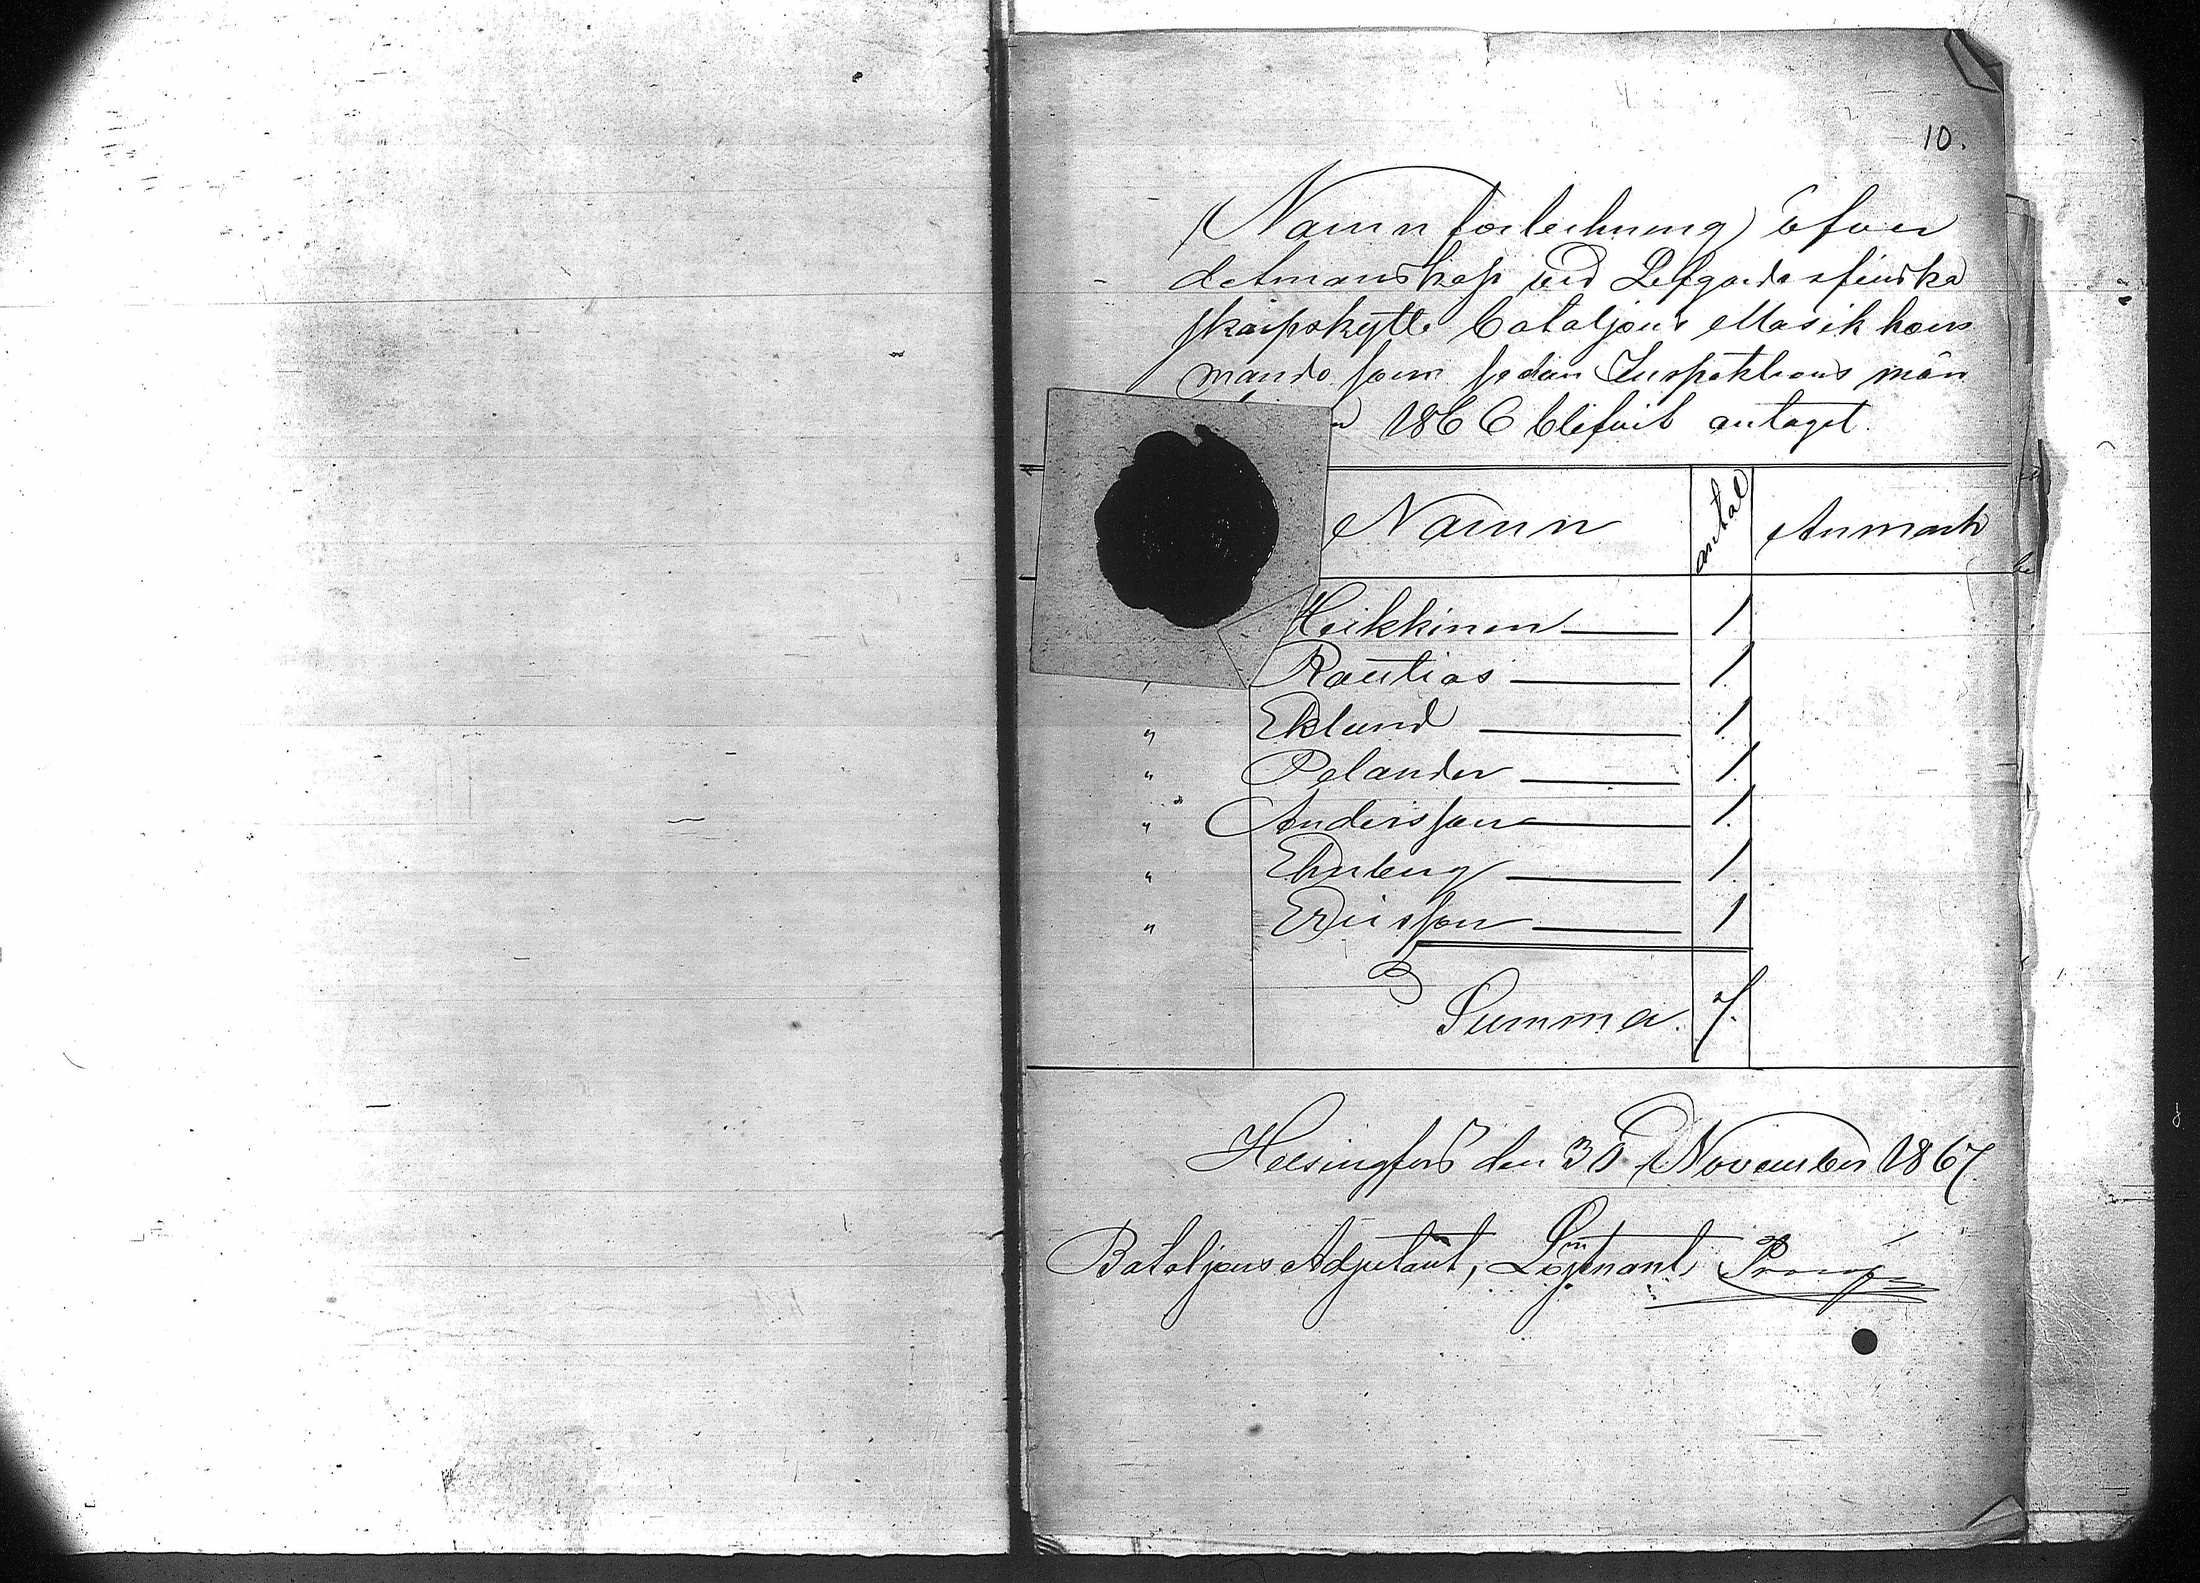 10.
Namnförteckning öfver
detmanskap vid Lifgardes finska
skarpskytte bataljons Musik kom
mando som sedan Inspektions mön
1866 blifvit antaget.
Namn antal Anmärk
Heikkinen 1
Rautias 1
" Eklund 1
" Pelander 1
" Andersson 1
" Ehnberg 1
" Ericsson 1
Summa. 7.
Helsingfors den 30 November 1867
Bataljons Adjutant, Löjtnant